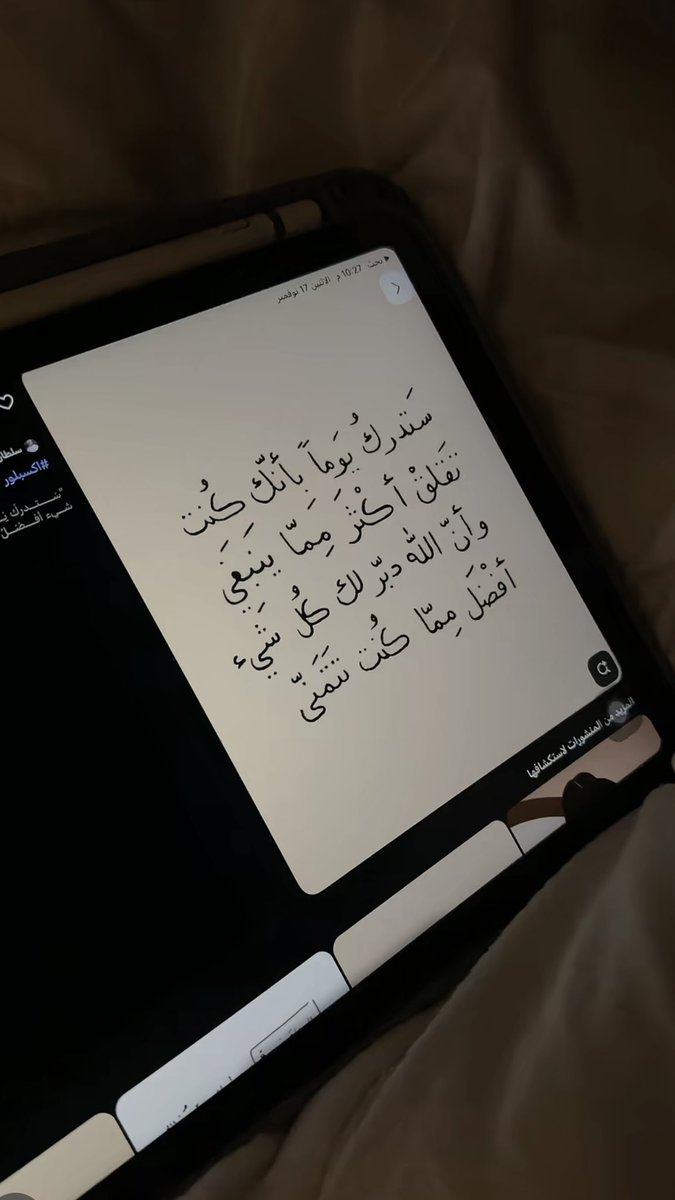 بحث 10:27 م الاثنين 17 نوفمبر
سَتدرك يُوَماً بأنكّ كُنت
تَقَلقْ أكْثَر مِمَّا يَنبَغي
وأنّ الله دبرّ لك كُلّ شَيء
أفْضَل مِمّا كُنت تَتَمَنّى
#اكسبلور
المزيد من المنشورات لاستكشافها